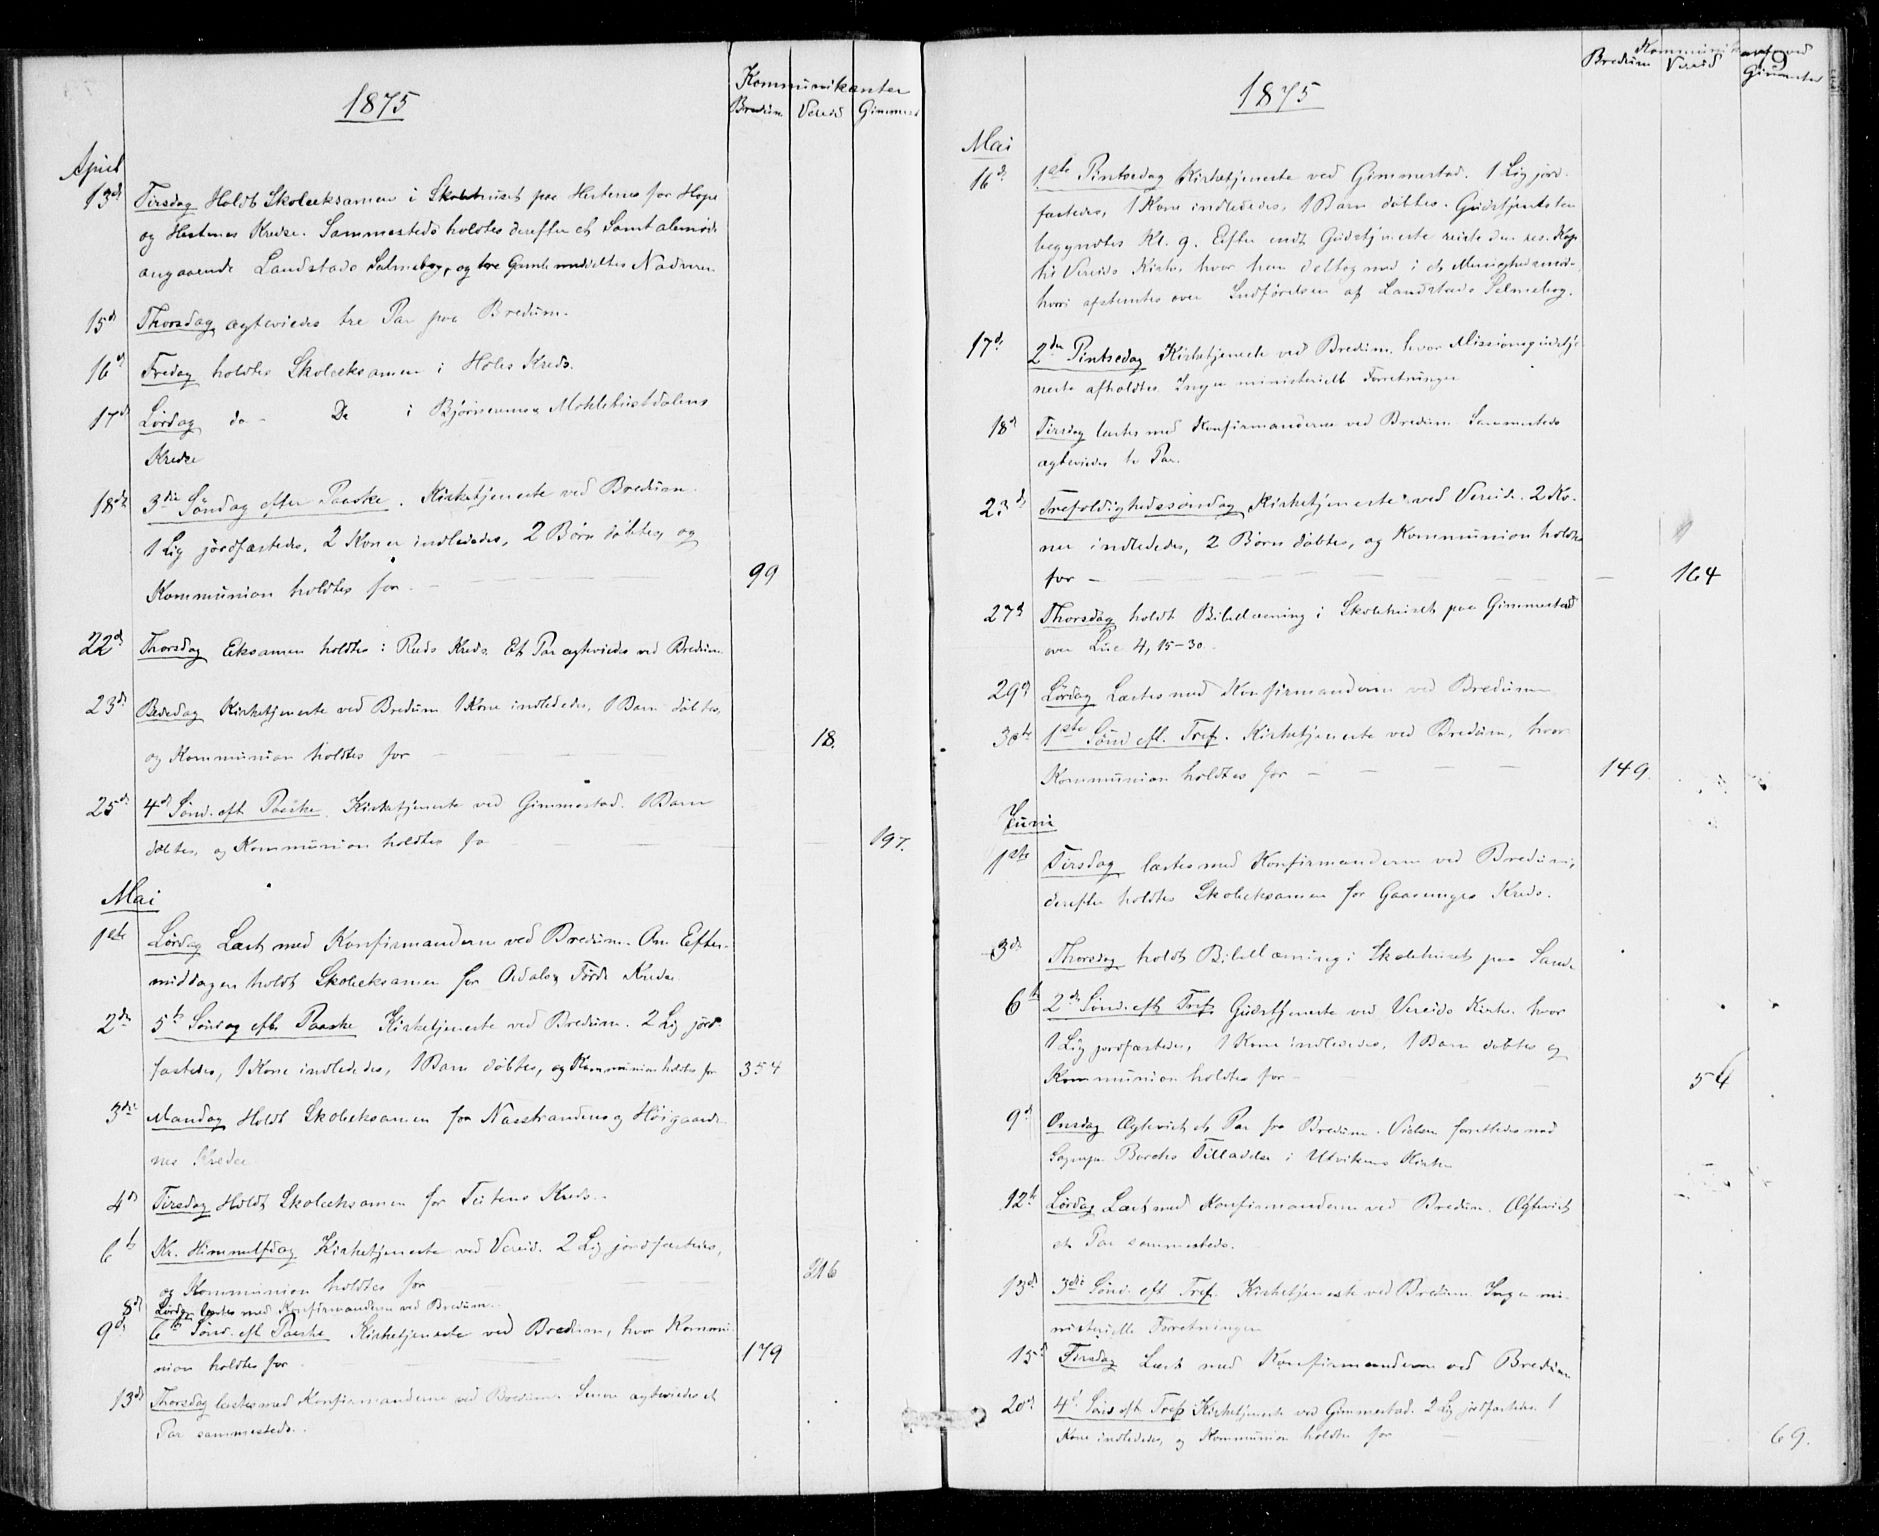 1875
Kommunikanter
Bredum Vereid Gimmest
April
13de Tirsdag Holdt Skoleeksamen i Skolehuset paa Hestenes for Hope
og Hestenes Kredse. Sammesteds holdtes derefter et Samtalemøde
angaaende Landstads Salmebog, og tre Gamle meddeltes Nadveren
15de Thorsdag ægteviedes tre Par paa Bredum.
16de Fredag holdtes Skoleeksamen i Holes Kreds.
17de Lørdag do - Do i Bjørnerems & Moldestadalens
Kredse
18de 3die Søndag efter Paaske. Kirketjeneste ved Bredum.
1 Lig jordfæstedes, 2 Koner indlededes, 2 Børn døbtes, og
Kommunion holdtes for - 99
22de Thorsdag Eksamen holdtes i Reeds Kreds. Et Par ægteviedes ved Bredum.
23de Bededag Kirketjeneste ved Bredum 1 Kone indlededes, 1 Barn døbtes,
og Kommunion holdtes for - 18.
25de 4de Sønd. eft Paaske. Kirketjeneste ved Gimmestad. 1 Barn
døbtes, og Kommunion holdtes fo 197.
Mai
1ste Lørdag Læst med Konfirmanderne ved Bredum. Om Efter-
middagen holdt Skoleeksamen for Ardals & Førde Kredse
2den 5te Søndag eft. Paaske Kirketjeneste ved Bredum. 2 Lig jord-
fæstedes, 1 Kone indlededes, 1 Barn døbtes, og Kommunion holdtes for 354
3die Mandag Holdt Skoleeksamen for Nosstrandens og Høigaarde-
nes Kredse
4de Tirsdag Holdt Skoleeksamen for Teitens Kreds.
6te Kr. Himmelfdag Kirketjeneste ved Vereid. 2 Lig jordfæstedes,
og Kommunion holdtes for 216
8de Lørdag læstes med Konfirmanderne ved Bredum.
9de 6te Sønd. eft. Paaske Kirketjeneste ved Bredum, hvor Kommu-
nion holdtes for 179
13de Thorsdag læstes med Konfirmanderne ved Bredum. Senere ægteviedes et
Par sammesteds.
1875
Kommunikanter ved
Bredum Vereid Gimmestad
79
Mai
16de 1ste Pintsedag Kirketjeneste ved Gimmestad. 1 Lig jord-
fæstedes, 1 Kone indlededes, 1 Barn døbtes. Gudstjenesten
begyndtes Kl. 9. Efter endt Gudstjeneste reiste den res. Kap.
til Vereids Kirke, hvor han deltog med i et Menighedsmøde
hvori afstemtes over Indførelsen af Landstads Salmebog.
17de 2den Pintsedag Kirketjeneste ved Bredum, hvor Missionsgudstje-
neste afholdtes Ingen ministerielle Forretninger
18de Tirsdag læstes med Konfirmanderne ved Bredum Sammesteds
ægteviedes to Par.
23de Trefoldighedssøndag Kirketjeneste ved Vereide. 2 Ko-
ner indlededes, 2 Børn døbtes, og Kommunion holdtes
for - 164
27de Thorsdag holdt Bibellæsning i Skolehuset paa Gimmestad
over Luc 4, 15-30.
29de Lørdag Læstes med Konfirmanderne ved Bredum
30te 1ste Sønd eft. Tref. Kirketjeneste ved Bredum, hvor
Kommunion holdtes for - 149.
Juni
1ste Tirsdag læstes med Konfirmanderne ved Bredum,
derefter holdtes Skoleeksamen for Gaasemyrs Kreds.
3de Thorsdag holdt Bibellæsning i Skolehuset paa Sande
6te 2de Sønd. eft. Tref. Gudstjeneste ved Vereids Kirke. hvor
1 Lig jordfæstedes, 1 Kone indlededes, 1 Barn døbtes og
Kommunion holdtes for - 54
9de Onsdag Ægteviet et Par fra Bredum. Vielsen forrettedes med
Sognepr. Borchs Tilladelse i Utvikens Kirke
12te Lørdag Læst med Konfirmanderne ved Bredum. Ægteviet
et Par sammesteds.
13de 3die Sønd. eft Tref. Kirketjeneste ved Bredum Ingen mi-
nisterielle Forretninger
15de Tirsdag Læst med Konfirmanderne ved Bredum
20de 4de Sønd eft. Tref. Kirketjeneste ved Gimmestad. 2 Lig jordfæstedes 1
Kone indlededes, og Kommunion holdtes for 69.